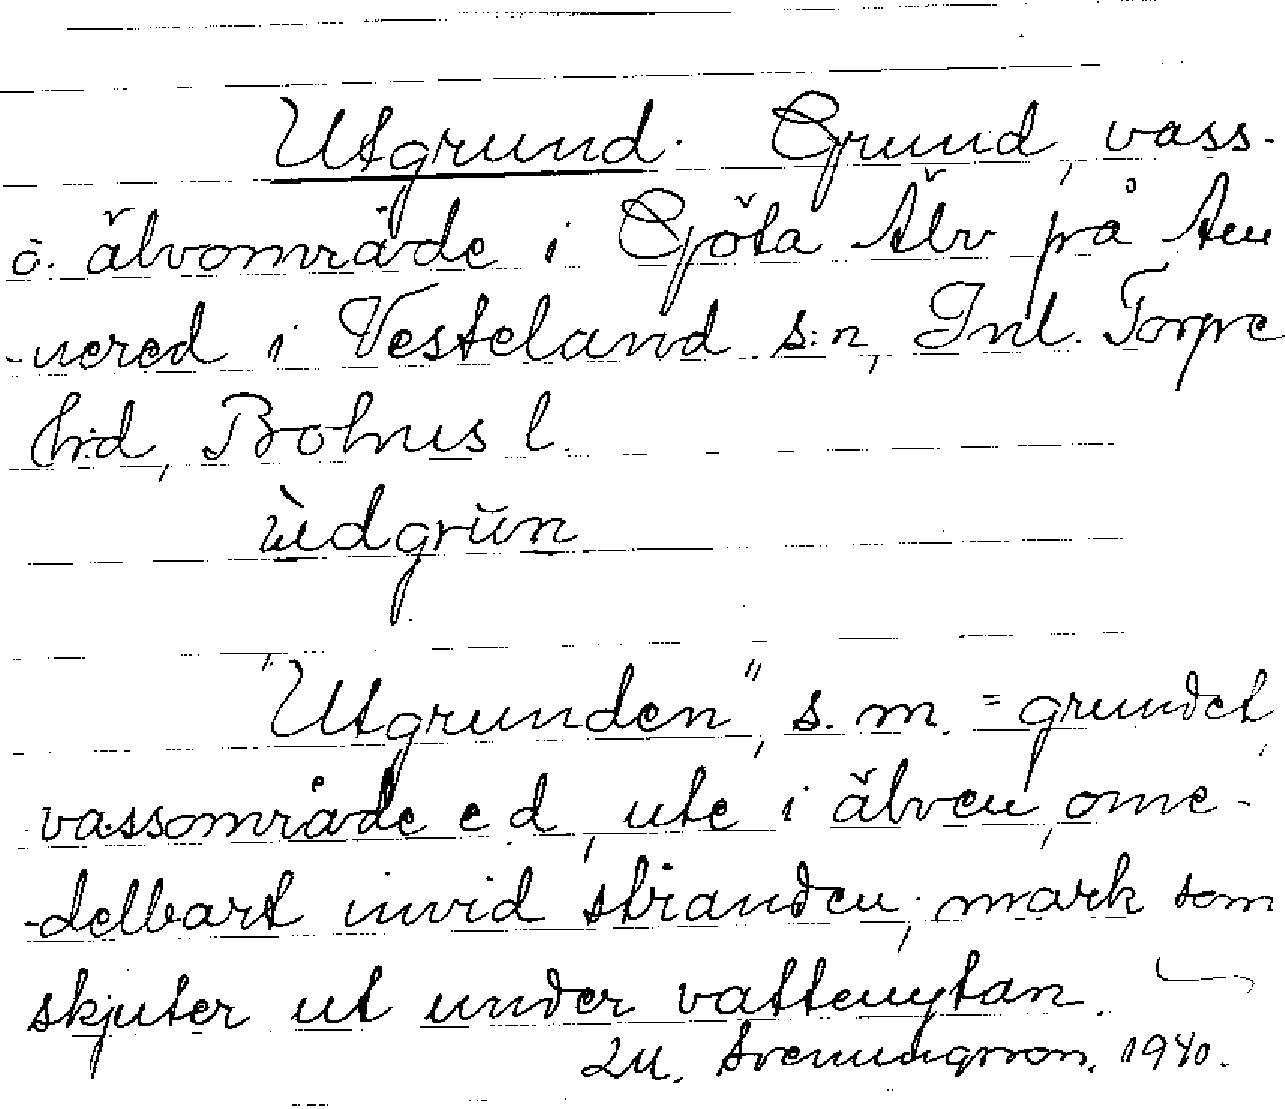 Utgrund. Grund, vass-
o. älvområde i Göta Älv på Äm
-nered i Vesteland s:n, Inl. Torpe
hrd, Bohus l.
ùdgrŭn
"Utgrunden", s. m. = grundet,
vassområde e d, ute i älven, ome-
-delbart invid stranden; mark som
skjuter ut under vattenytan.
Svenningsson. 1940.